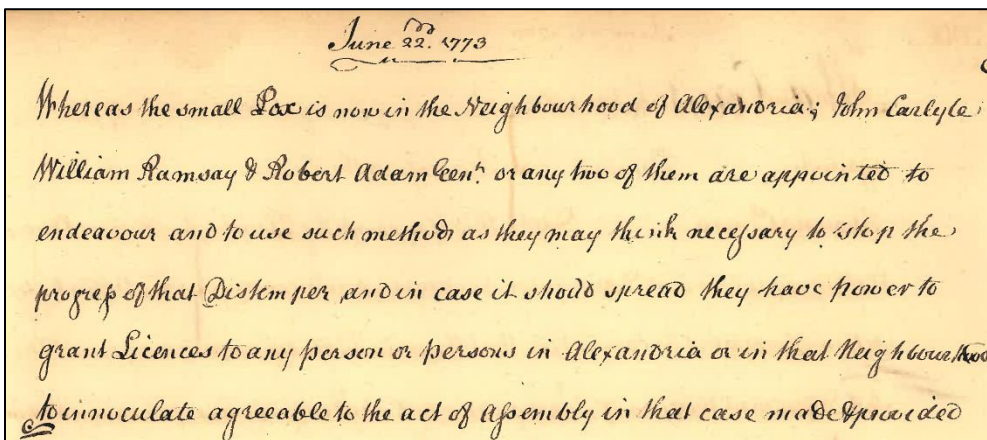 June 22d. 1773
Whereas the small Pox is now in the Neighbourhood of Alexandria; John Carlyle
William Ramsay & Robert Adam Gent. or any two of them are appointed to
endeavour and to use such methods as they may think necessary to stop the
progress of that Distemper and in case it should spread they have power to
grant Licences to any person or persons in Alexandria or in that Neighbourhood
to innoculate agreeable to the act of Assembly in that case made & provided